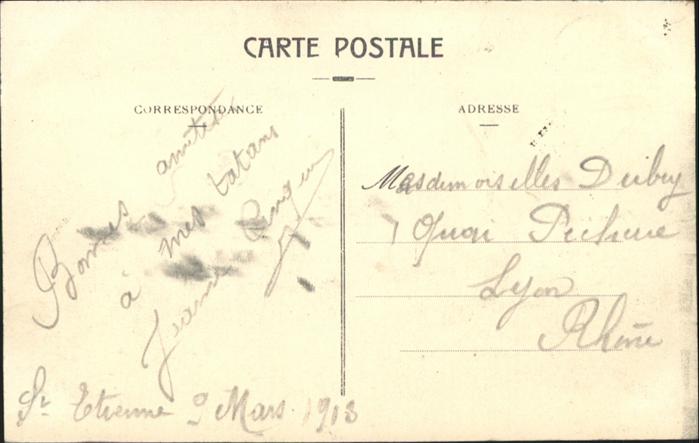 CARTE POSTALE
CORRESPONDANCE
Bonnes amitiés
à mes tatans
Jeanne
St Etienne 9 Mars 1913
ADRESSE
Mesdemoiselles
7 Quai
Lyon
Rhône